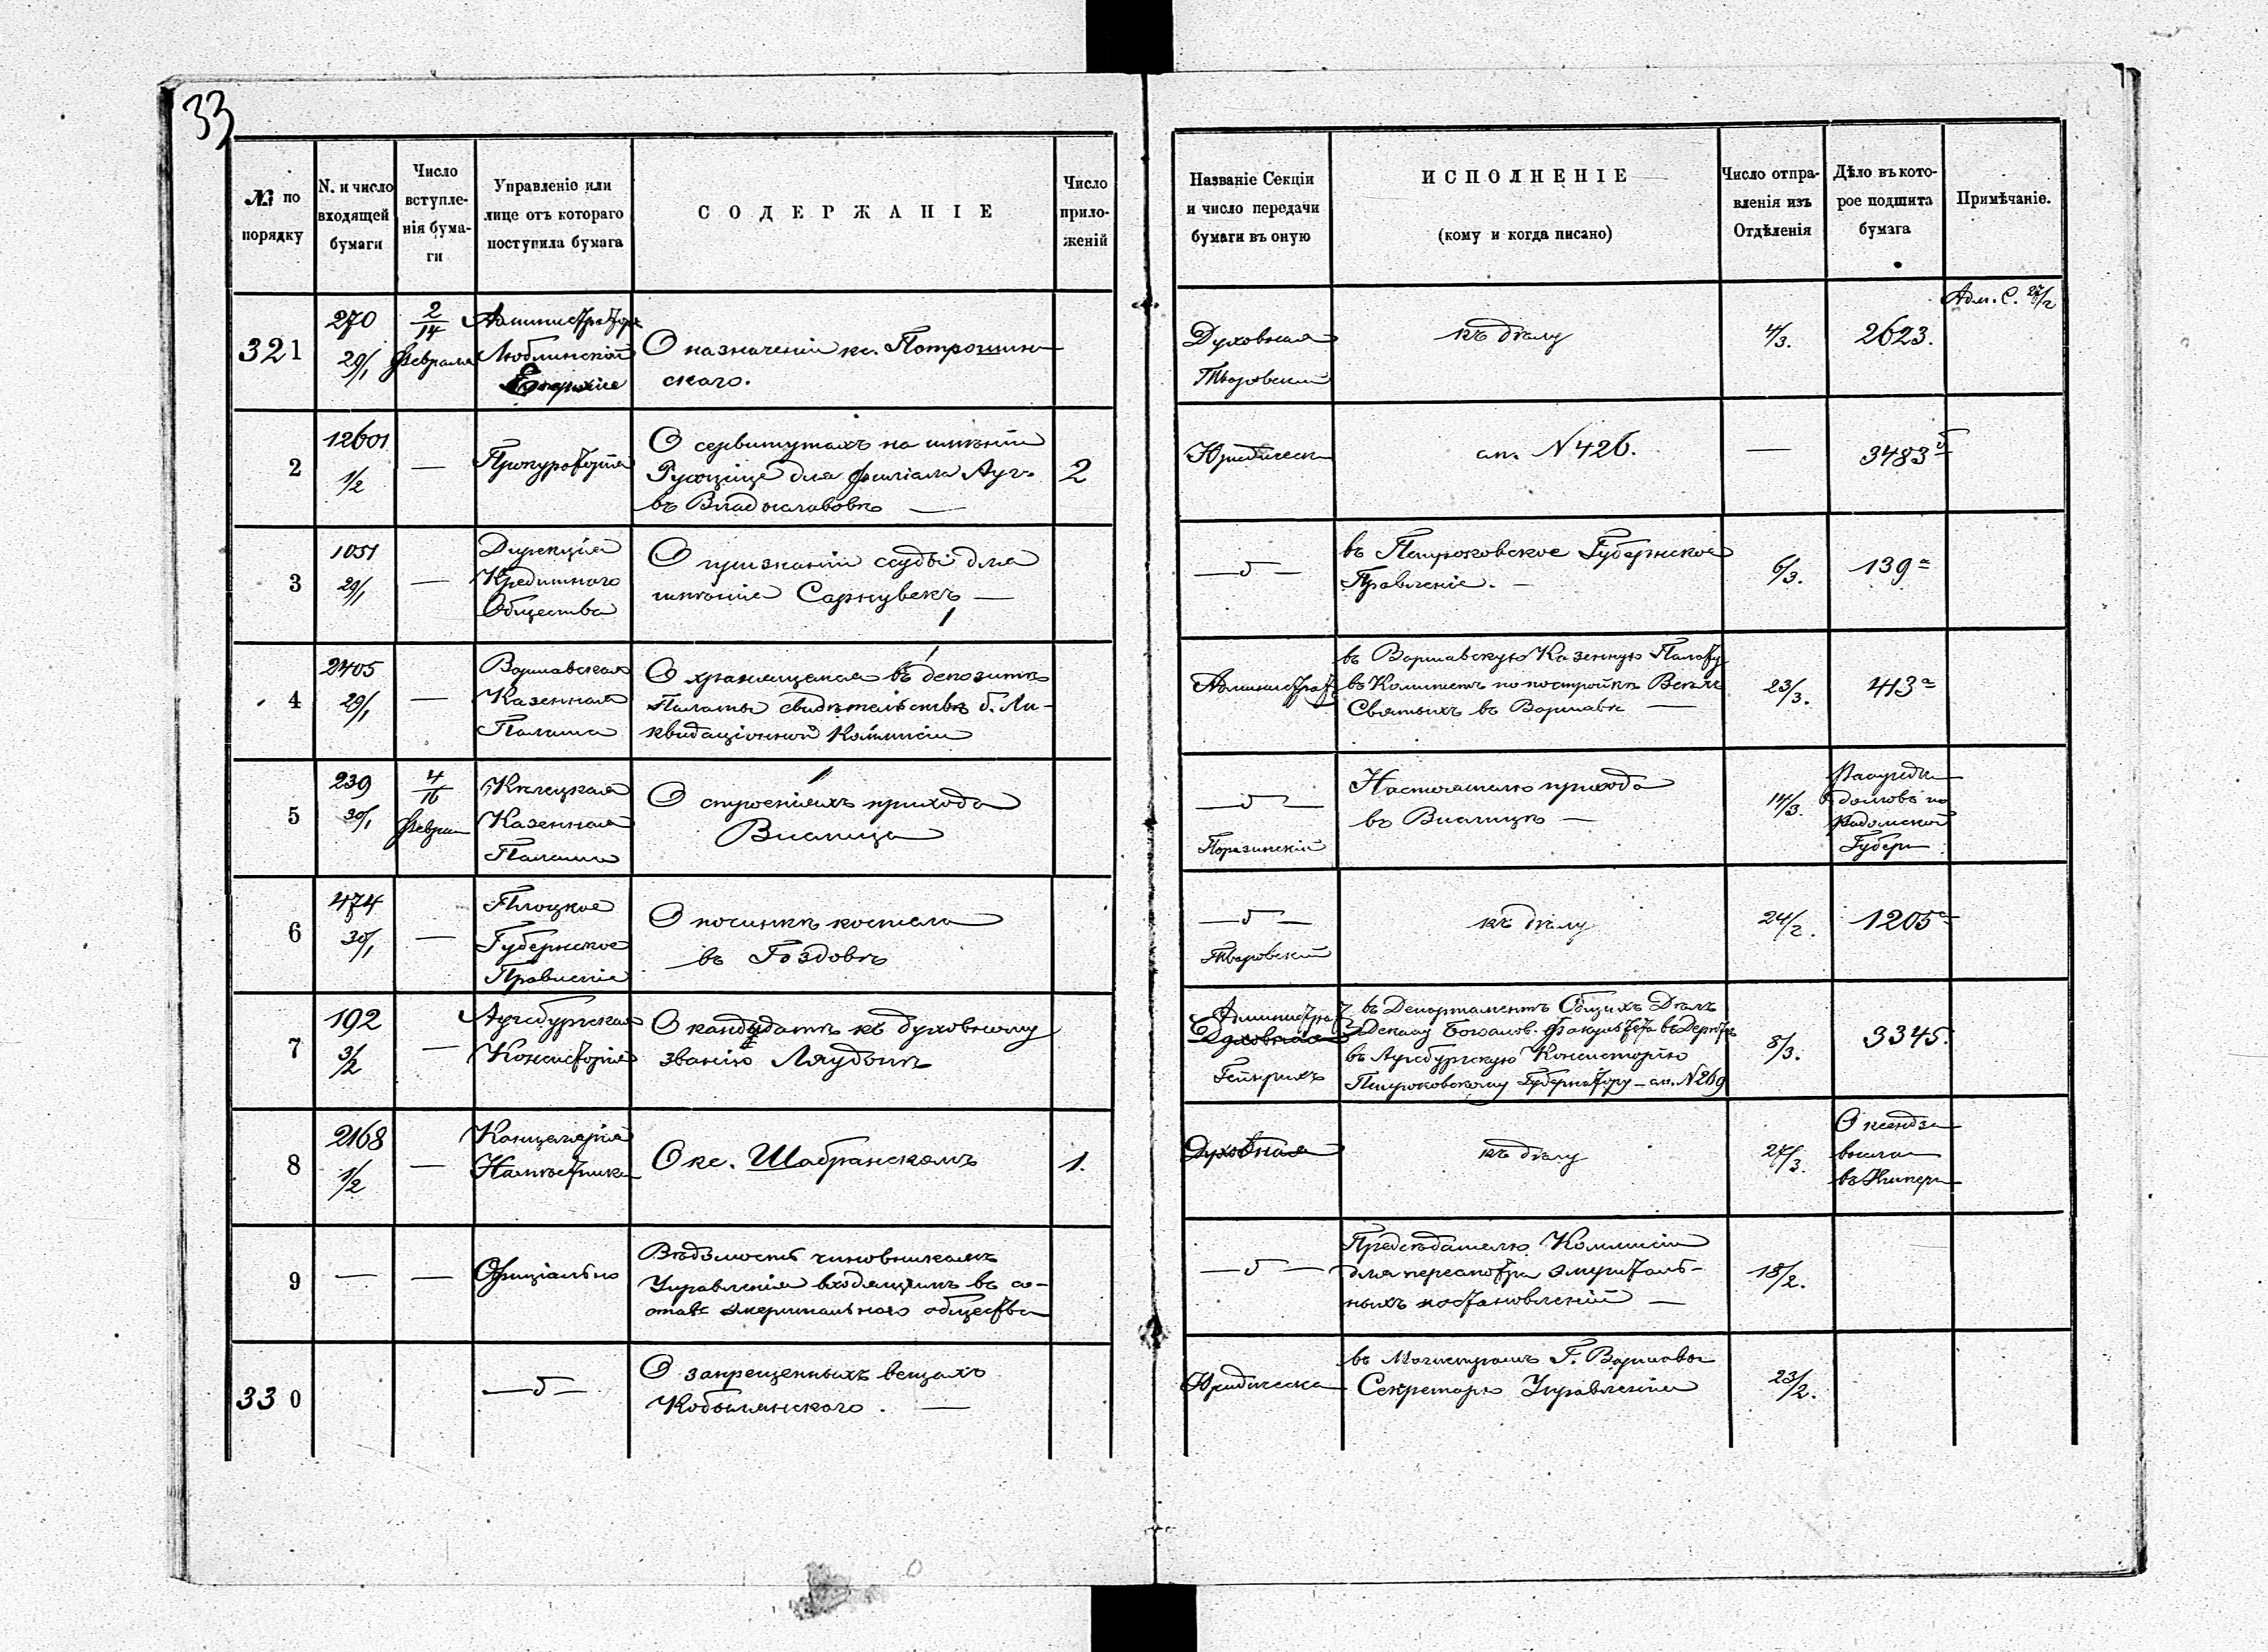 33
№ по порядку
N. и число входящей бумаги
Число вступленія бумаги
Управленіе или лице отъ котораго поступила бумага
СОДЕРЖАНІЕ
Число приложеній
Названіе Секціи и число передачи бумаги въ оную
ИСПОЛНЕНІЕ
(кому и когда писано)
Число отправленія изъ Отдѣленія
Дѣло въ которое подшита бумага
Примѣчаніе.
321
270
29/1
2/14
Февраля
Администраторъ
Люблинской
Епархіи
О назначеніи кс.
скаго.
Духовная
къ дѣлу
4/3.
2623.
Адм. С. 27/2
2
12601
1/2
—
Прокураторія
О сервитутахъ на имѣніи
для филіала Ауг.
въ Владиславовѣ —
2
Юридическ
ап. N 426.
—
3483
3
1051
29/1
—
Дирекція
Кредитнаго
Общества
О признаніи судьі для
имѣнія Сарнувекъ —
— " —
въ Петроковское Губернское
Правленіе. —
6/3.
139 а
4
2405
29/1
—
Варшавская
Казенная
Палата
О хранящемся въ депозитѣ
Палаты свидѣтельствѣ б. Ли-
квидаціонной Коммисіи
Администрат
въ Варшавскую Казенную Палату
въ Комитетъ по постройкѣ Всѣхъ
Святыхъ въ Варшавѣ —
23/3.
413 а
5
239
30/1
4/16
Феврал
Кѣлецкая
Казенная
Палата
О строеніяхъ прихода
Вислица
— " —
Поразинскій
Настоятелю прихода
въ Вислицѣ —
14/3.
долговъ по
Радомской
Губерн
6
474
30/1
—
Плоцкое
Губернское
Правленіе
О починкѣ костела
въ Гоздовѣ
— " —
къ дѣлу
24/2.
1205
7
192
3/2
—
Аугсбургская
Консисторія
О кандидатѣ къ духовному
званію Ляудонѣ
Администрат
Духовная
Гейнрихъ
въ Департаментъ Общихъ Дѣлъ
Декану Богослов. факультета въ Дерптѣ
въ Аугсбургскую Консисторію
Петроковскому Губернатору — ап. N 269
8/3.
3345.
8
2168
1/2
—
Канцелярія
Намѣстника
О кс. Шабранскомъ
1.
Духовная
къ дѣлу
27/3.
О ксендза
высла
въ Импери
9
—
—
Офиціально
Вѣдомость чиновникамъ
Управленія входящимъ въ со-
ставъ эмеритальнаго общества
— " —
Предсѣдателю Коммисіи
для пересмотра эмериталь-
ныхъ постановленій —
18/2.
330
— " —
О запрещенныхъ вещахъ
Кобылянскаго. —
Юридическа
въ Магистратъ Г. Варшавы
Секретарю Управленія
23/2.